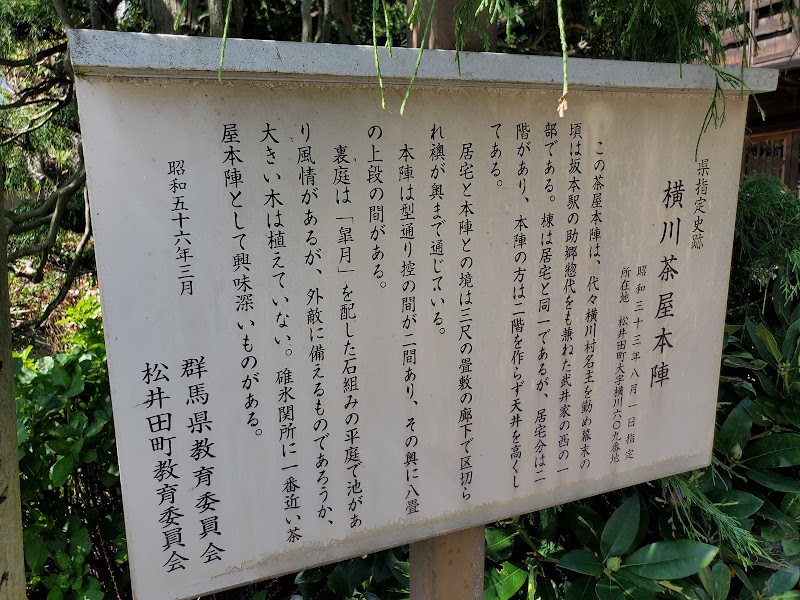 県指定史跡
横川茶屋本陣
昭和三十三年八月一日指定
所在地 松井田町大字横川六〇九番地
この茶屋本陣は、代々横川村名主を勤め幕末の
頃は坂本駅の助郷惣代をも兼ねた武井家の西の一
部である。棟は居宅と同一であるが、居宅分は二
階があり、本陣の方は二階を作らず天井を高くし
てある。
居宅と本陣との境は三尺の畳敷の廊下で区切ら
れ襖が奥まで通じている。
本陣は型通り控の間が二間あり、その奥に八畳
の上段の間がある。
裏庭は、「皐月」を配した石組みの平庭で池があ
り風情があるが、外敵に備えるものであろうか、
大きい木は植えていない。碓氷関所に一番近い茶
屋本陣として興味深いものがある。
昭和五十六年三月
群馬県教育委員会
松井田町教育委員会